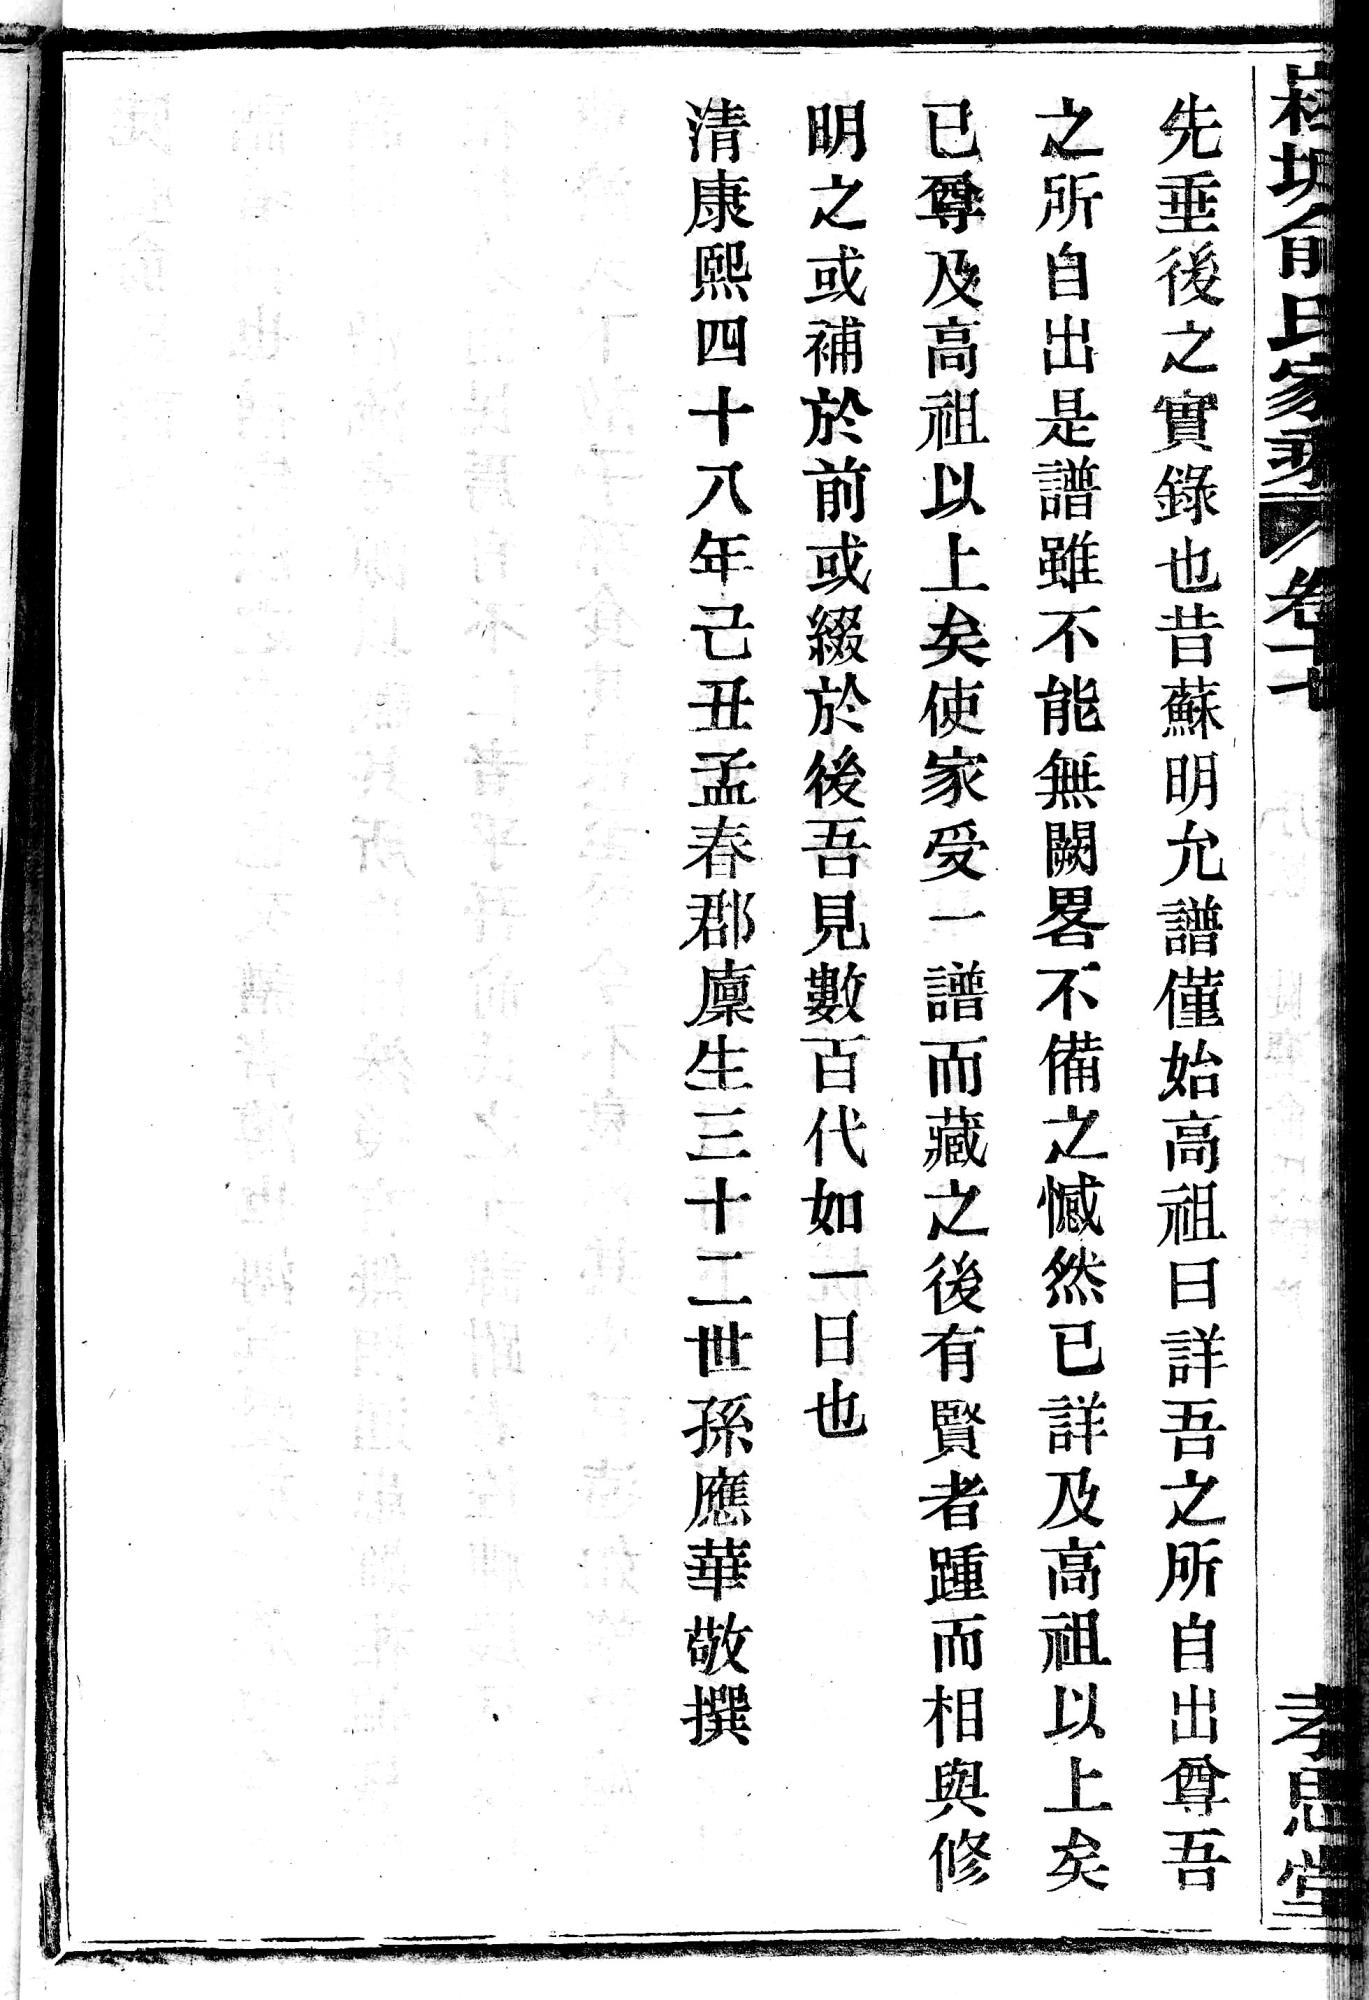 俞氏家乘 卷十七 孝思堂
先垂後之實錄也昔蘇明允譜僅始高祖曰詳吾之所自出尊吾
之所自出是譜雖不能無闕畧不備之憾然已詳及高祖以上矣
已尊及高祖以上矣使家受一譜而藏之後有賢者踵而相與修
明之或補於前或綴於後吾見數百代如一日也
清康熙四十八年己丑孟春郡廩生三十二世孫應華敬撰